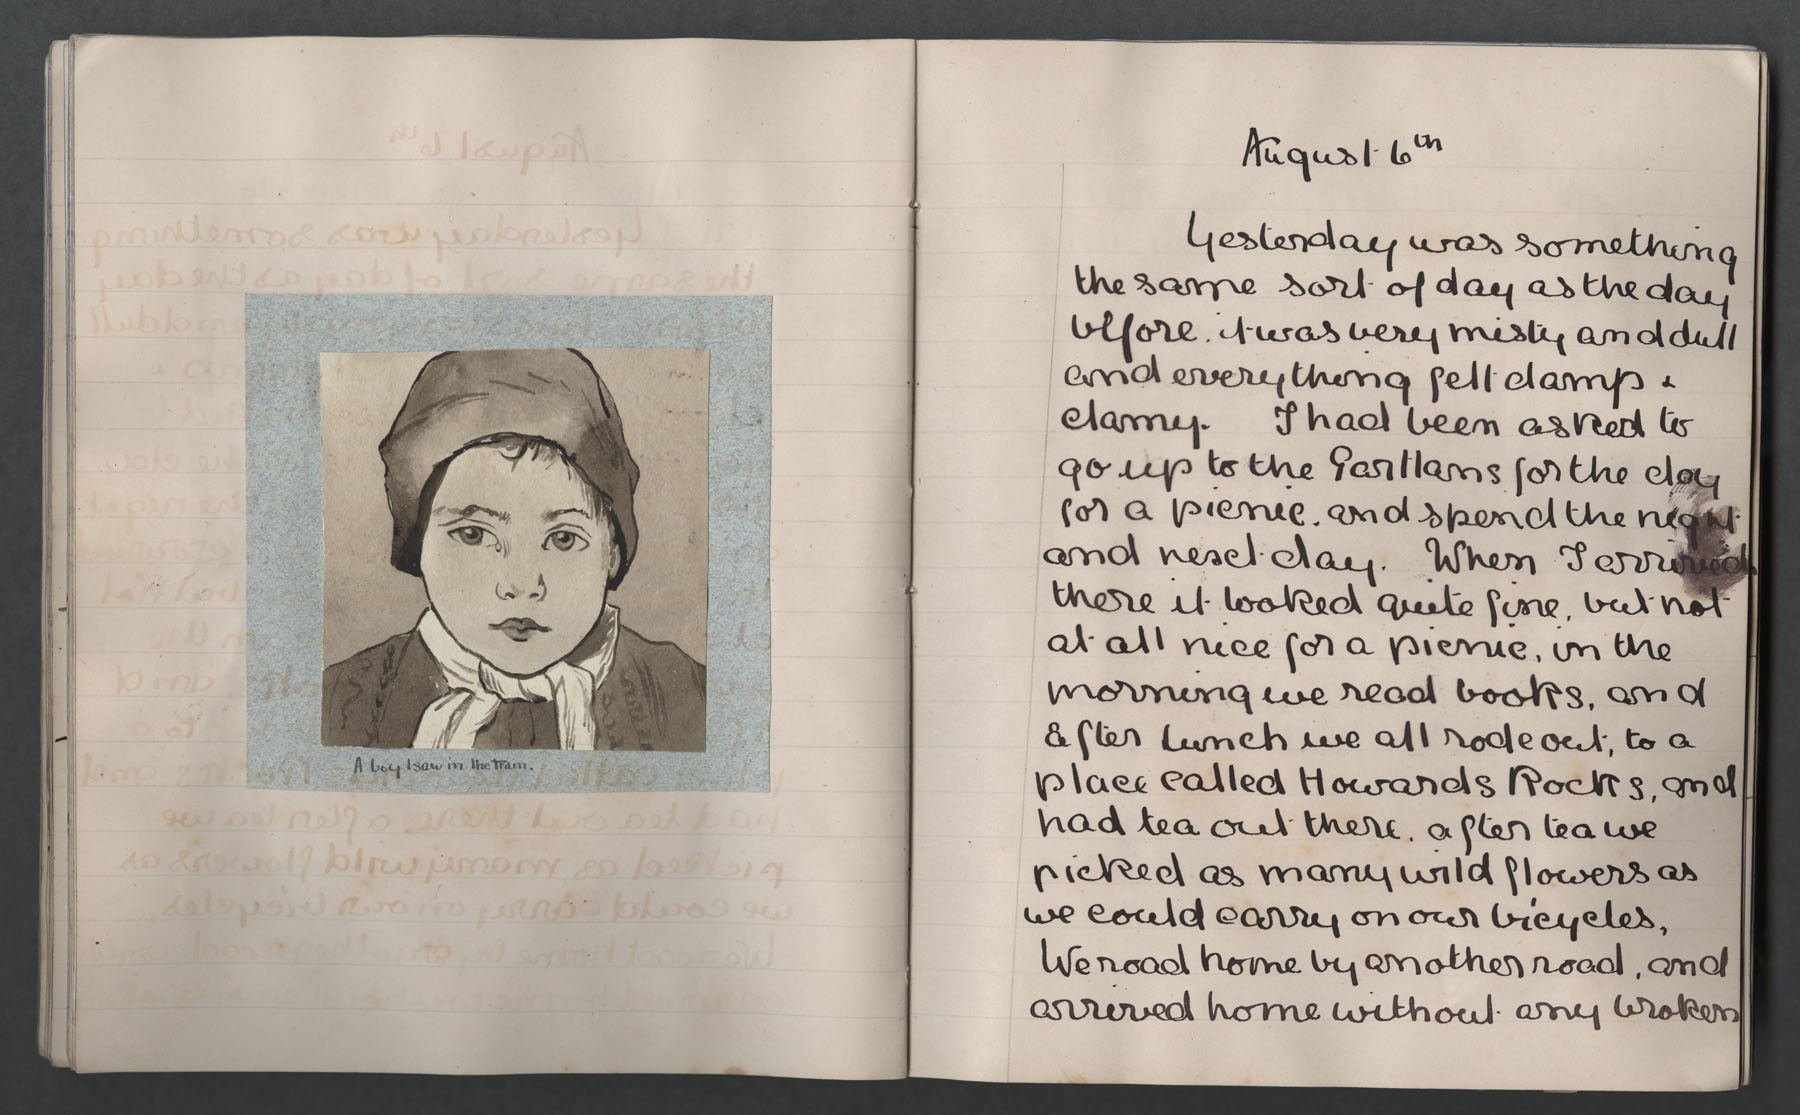 A boy I saw in the Tram.
August 6th
Yesterday was something
the same sort of day as the day
before. it was very misty and dull
and everything felt damp &
clamy. I had been asked to
go up to the Gartlans for the day
for a picnic. and spend the night
and next day. When I arrived
there it looked quite fine, but not
at all nice for a picnic, in the
morning we read books, and
after lunch we all rode out, to a
place called Howards Rocks, and
had tea out there. after tea we
picked as many wild flowers as
we could carry on our bicycles,
We road home by another road, and
arrived home without any broken